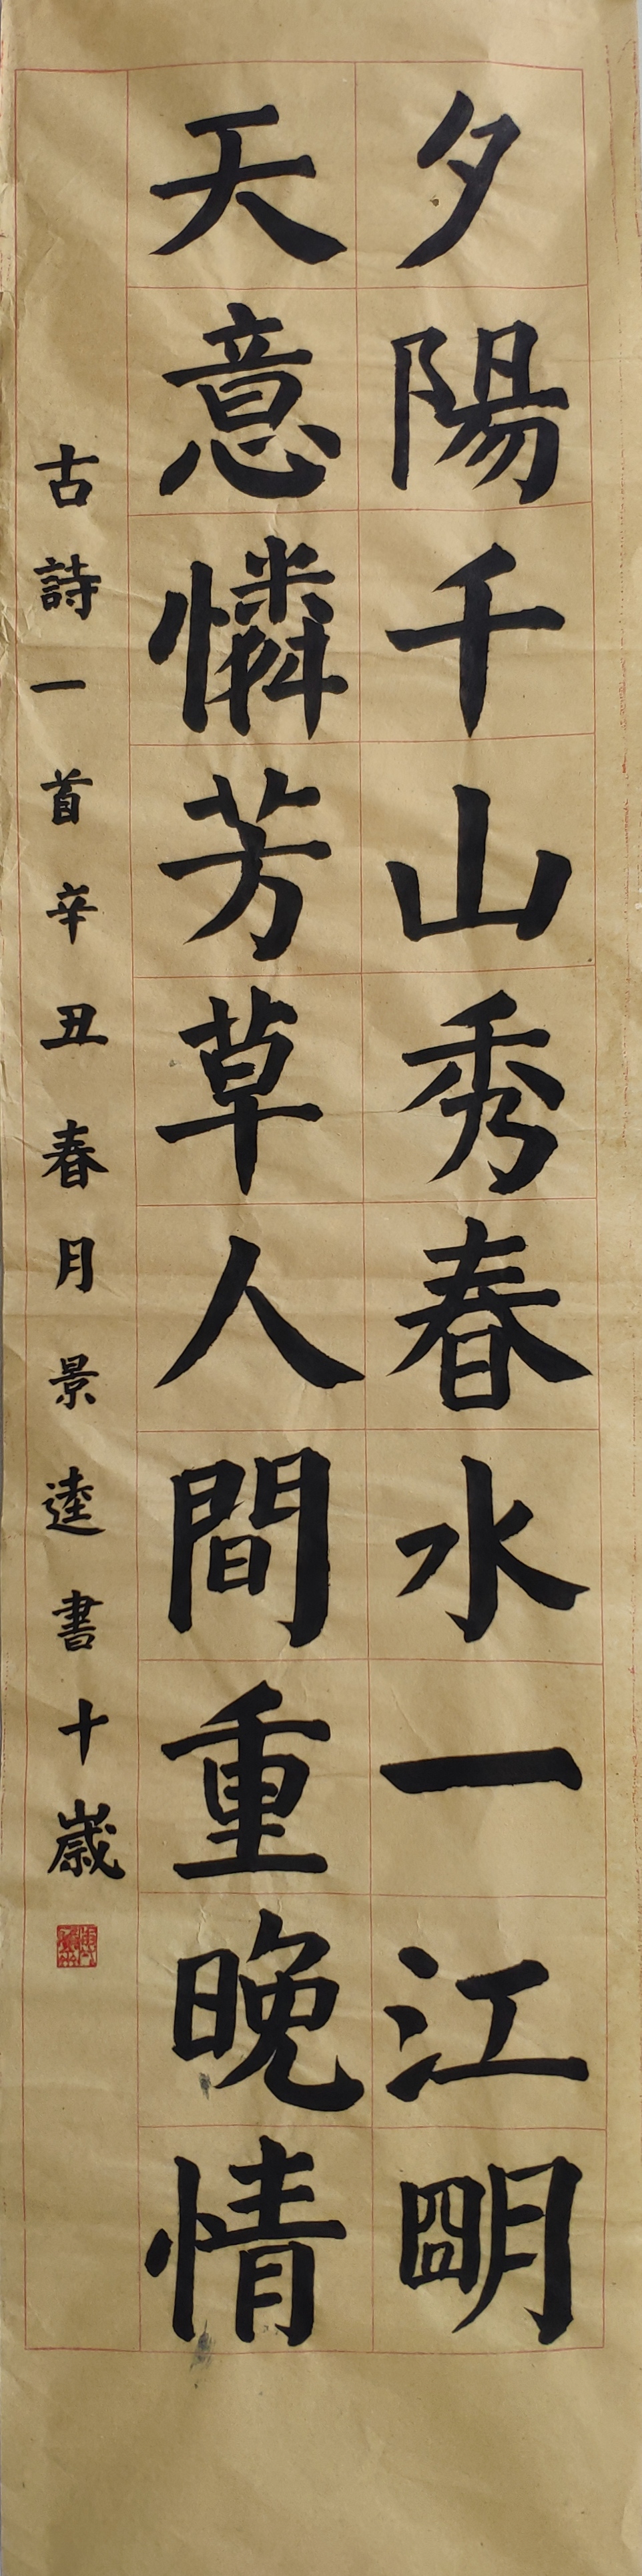 夕陽千山秀春水一江明
天意憐芳草人間重晚情
古詩一首辛丑春月景逵書十歲